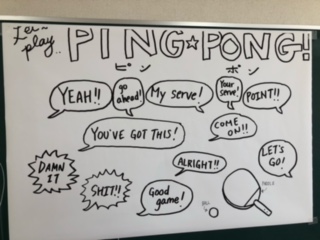 Let~
play..
PING☆PONG!
ピン
ポン
YEAH!!
go
ahead!
My serve!
Your
serve!
POINT!!
YOU'VE GOT THIS!
COME
ON!!
DAMN
IT
SHIT!!
ALRIGHT!!
LET'S
GO!
Good
game!